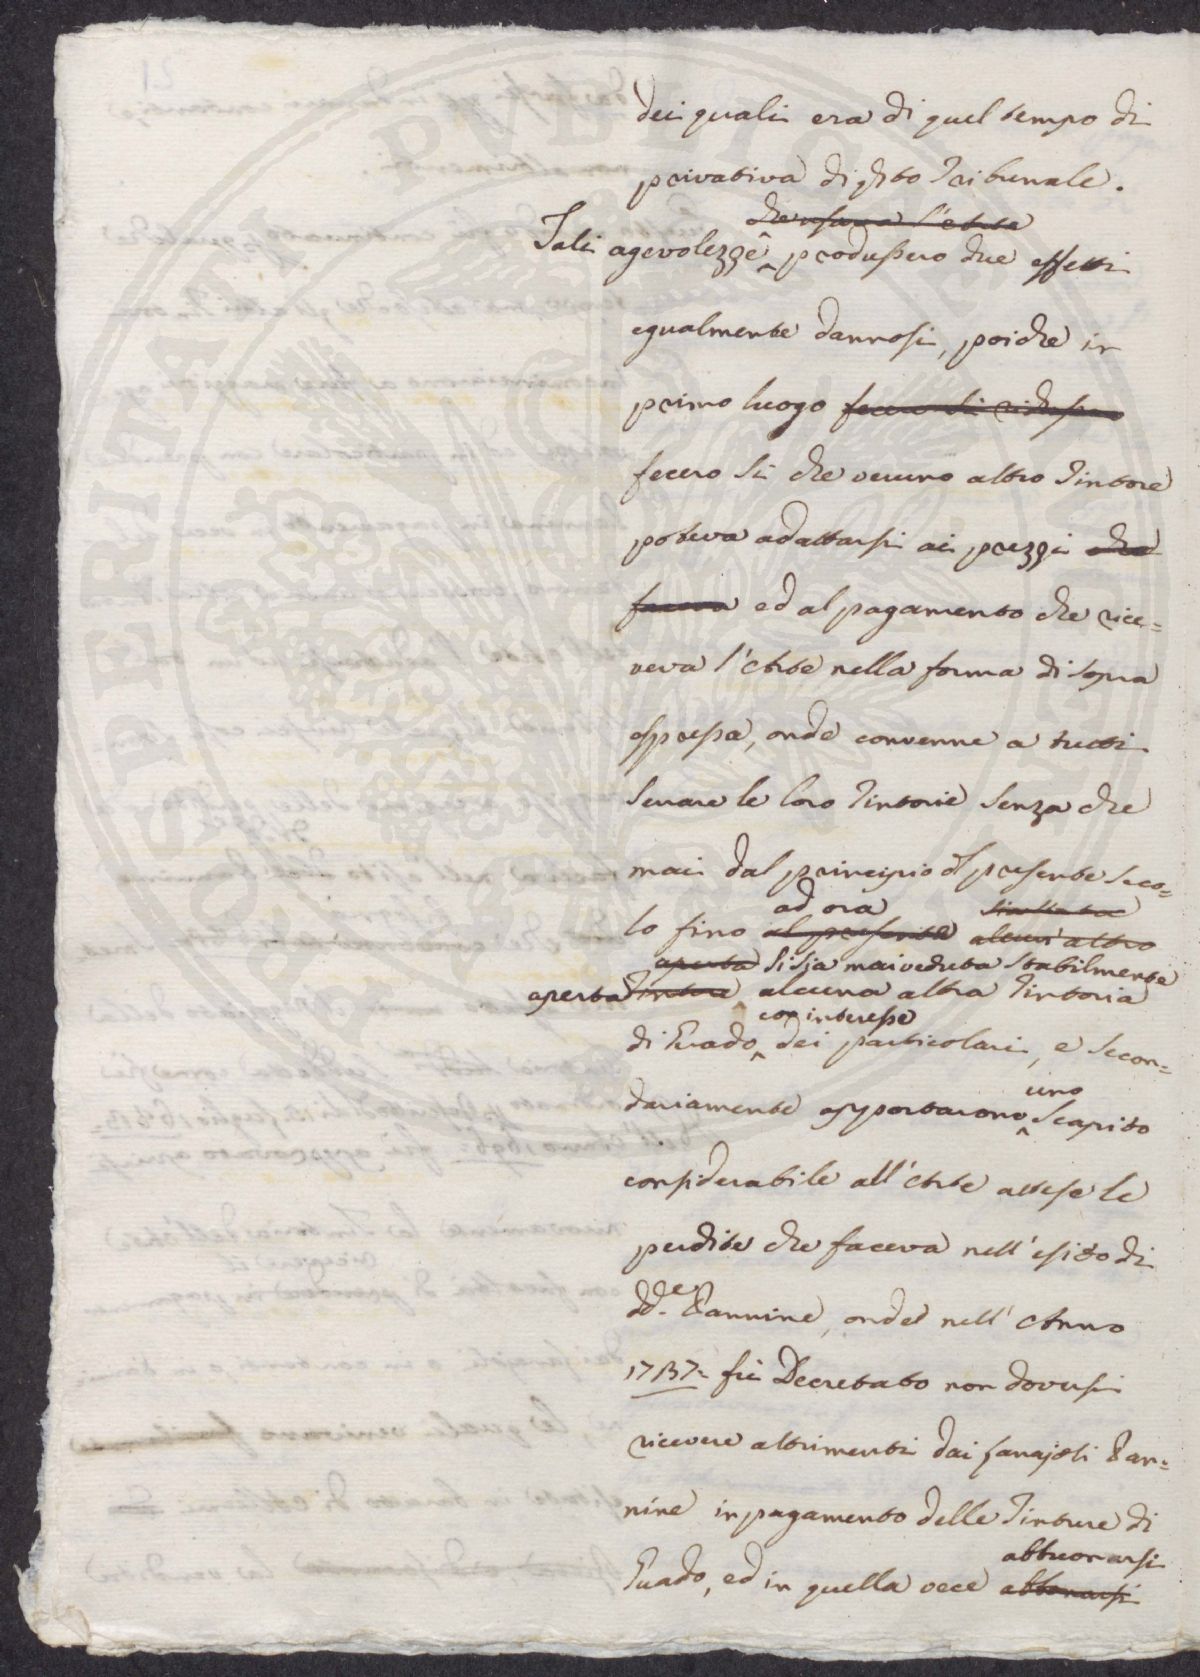 dei quali era di quel tempo di
privativa di qsto Tribunale.
che usava l'Arte
Tali agevolezze produssero due effetti
egualmente dannosi, poiche in
primo luogo fecero si
fecero si che veruno altro Tintore
poteva adattarsi ai prezzi che
faceva ed al pagamento che rice=
veva l'Arte nella forma di sopra
espressa, onde convenne a tutti
serrare le loro Tintorie senza che
mai dal principio del presente seco=
ad ora
lo fino al presente alcun' altro
aperta si sia mai veduta stabilmente
aperta Tintore alcuna altra Tintoria
con interesse
di Guado dei particolari, e secon=
uno
dariamente apportarono scapito
considerabile all'Arte attese le
perdite che faceva nell'esito di
dde. Pannine, onde nell'Anno
1737= fù Decretato non doversi
ricevere altrimenti dai Lanajoli Pan=
nine in pagamento delle Tinture di
abbuonarsi
Guado, ed in quella vece abbonarsi
PVBLICAE
PROSPERITATI